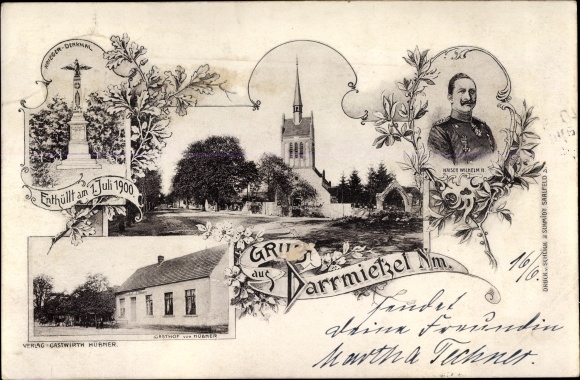 KRIEGER-DENKMAL
Enthüllt am 1. Juli 1900
KAISER WILHELM II.
GRUSS
aus Darrmietzel Nm.
GASTHOF von HÜBNER
VERLAG: GASTWIRTH HÜBNER.
DRUCK v. SCHÖNAU & SCHMIDT SAALFELD S.
16/6.
Sendet
Deine Freundin
Martha Techner.